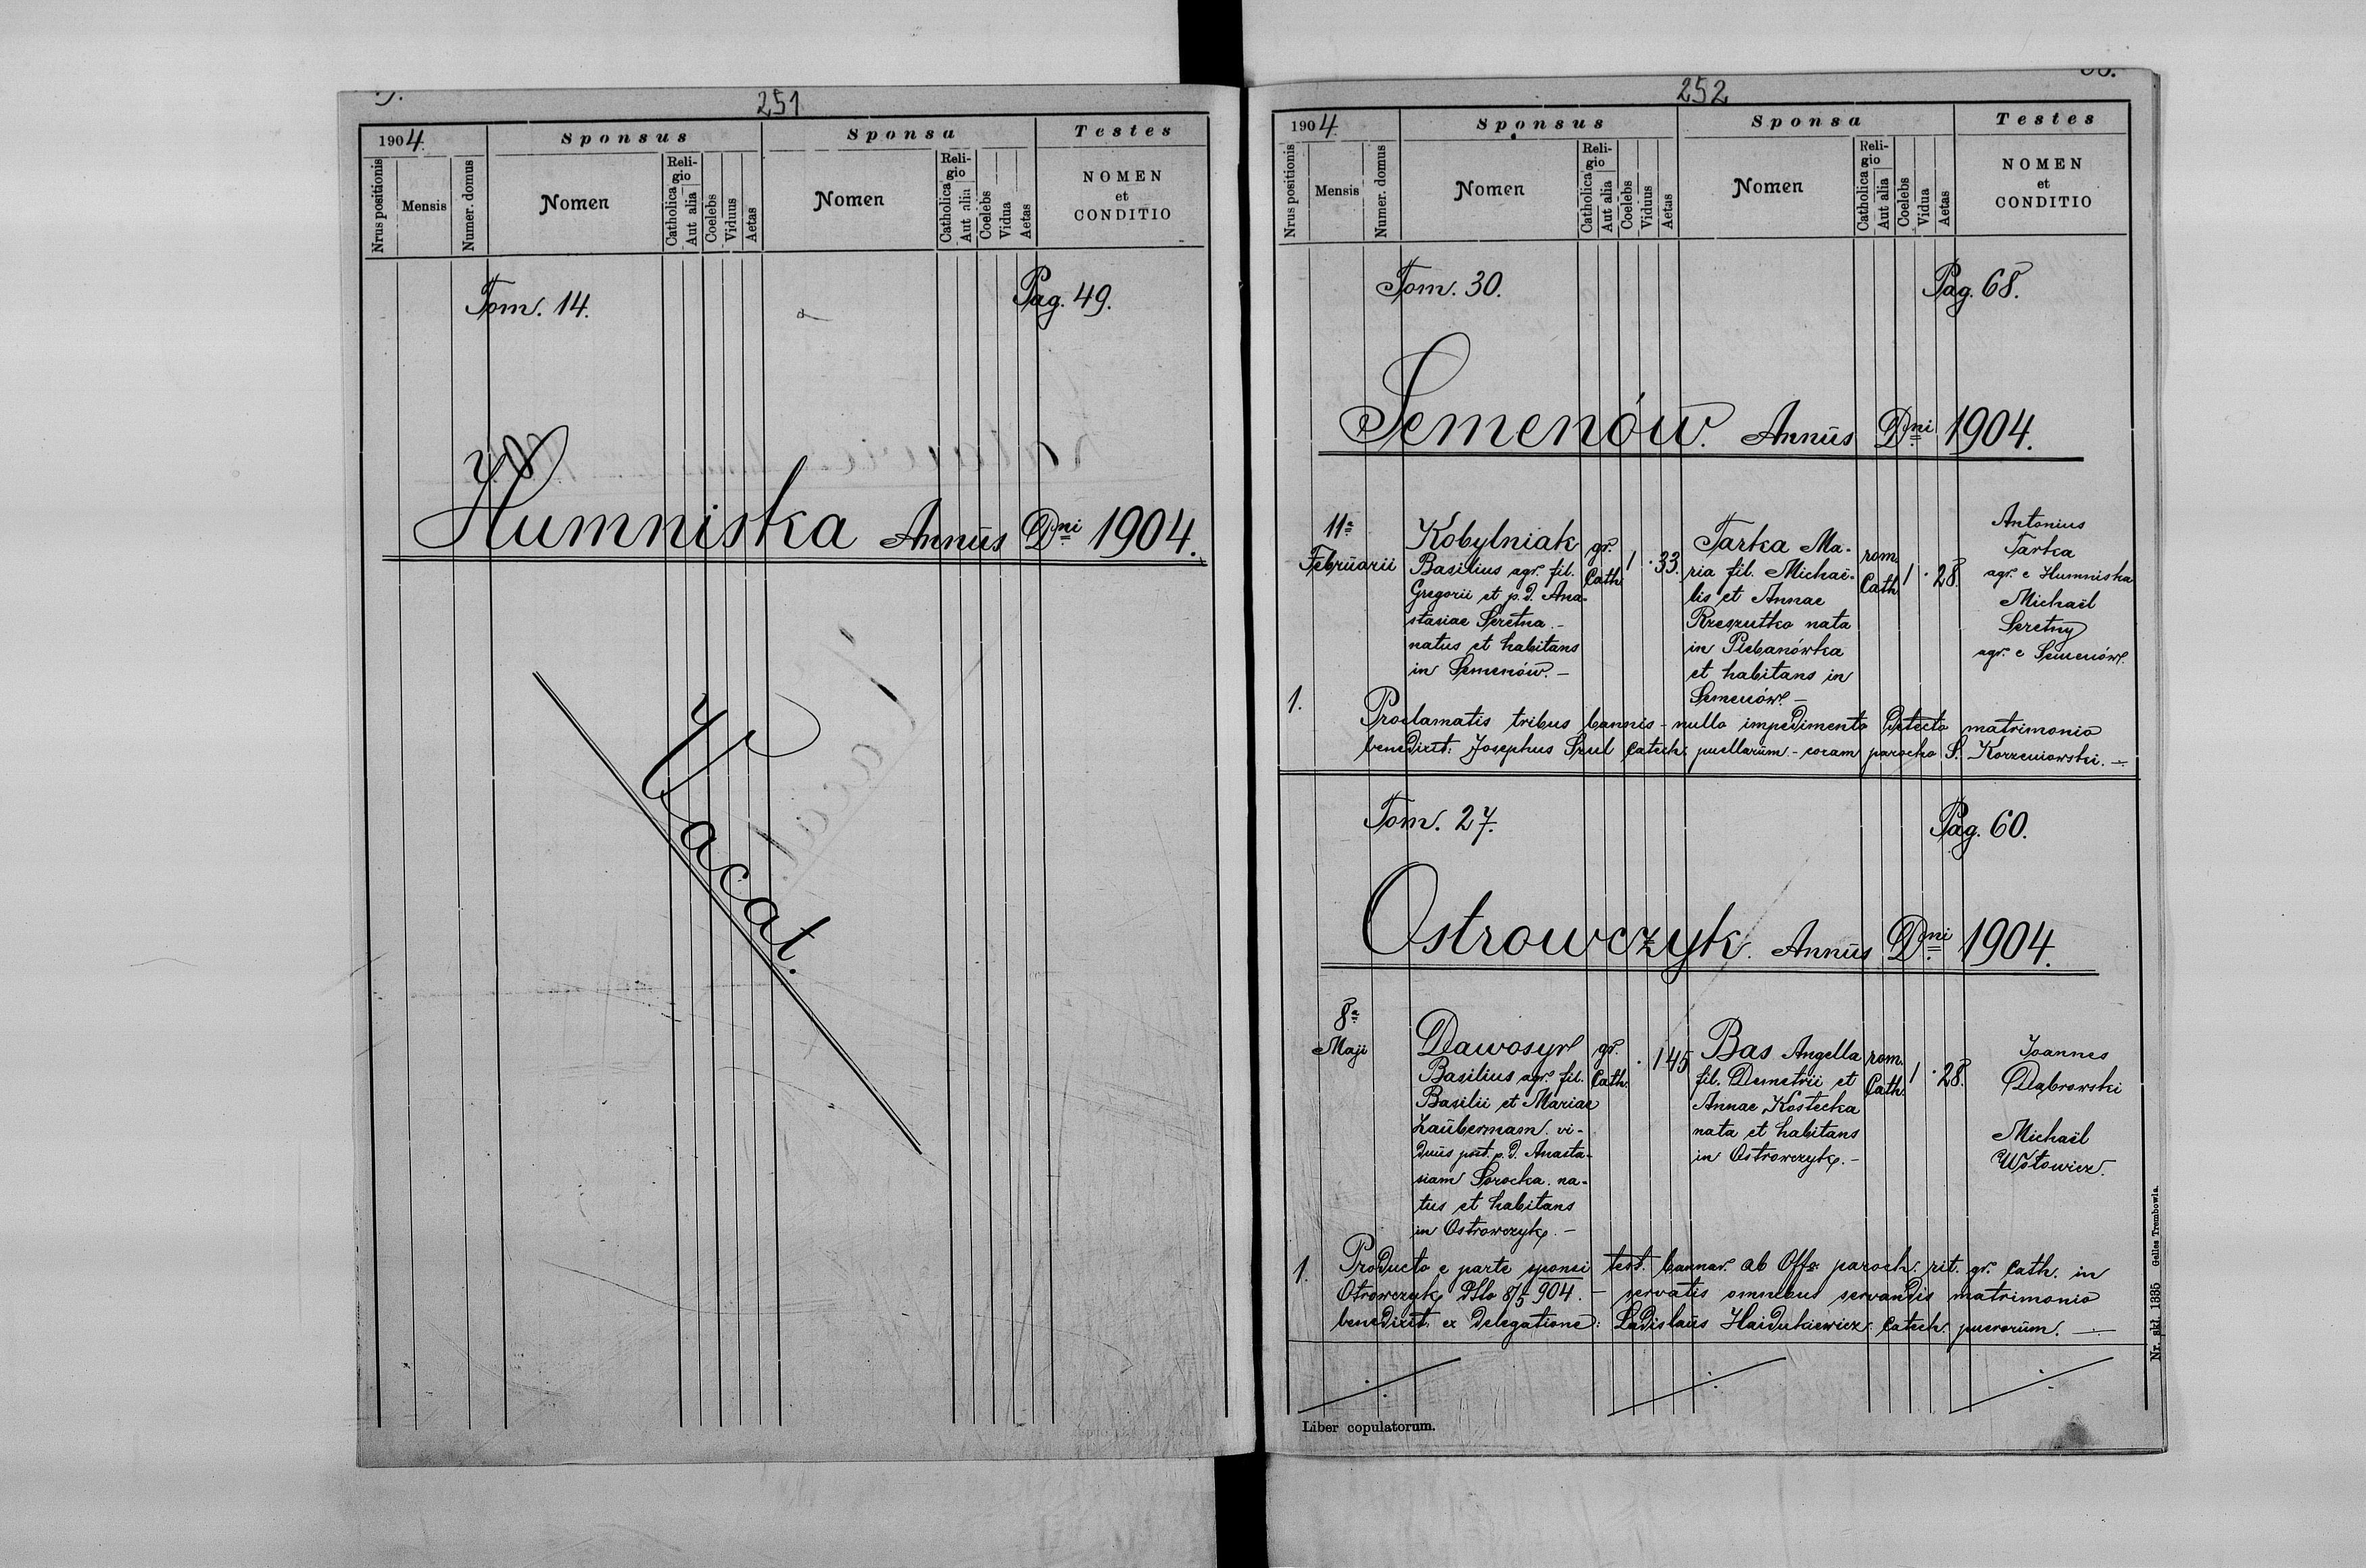 251
1904.
Sponsus
Sponsa
Testes
Nrus positionis
Mensis
Numer. domus
Nomen
Religio
Catholica
Aut alia
Coelebs
Viduus
Aetas
Nomen
Religio
Catholica
Aut alia
Coelebs
Vidua
Aetas
NOMEN
et
CONDITIO
Tom. 14.
Pag. 49.
Humniska Annus Dni 1904.
Vacat.
252
1904.
Sponsus
Sponsa
Testes
Nrus positionis
Mensis
Numer. domus
Nomen
Reli-
gio
Catholica
Aut alia
Coelebs
Viduus
Aetas
Nomen
Reli-
gio
Catholica
Aut alia
Coelebs
Vidua
Aetas
NOMEN
et
CONDITIO
Tom. 30.
Pag. 68.
Semenów. Annus Dni 1904.
11a
Februarii
Kobylniak
Basilius agr. fil.
Gregorii et p. d. Ana-
stasiae Seretna. -
natus et habitans
in Semenów. -
gr.
Cath.
1 . 33.
Tarka Ma-
ria fil. Michaë-
lis et Annae
Rzeszutko nata
in Plebanówka
et habitans in
Semenów. -
rom.
Cath.
1 . 28.
Antonius
Tarka
agr. e Humniska
Michaël
Seretny
agr. e Semenów.
1.
Proclamatis tribus bannis - nullo impedimento detecto matrimonio
benedixit: Josephus Szul Catech. puellarum. - coram parocho S. Korzeniowski. -
Tom. 27.
Pag. 60.
Ostrowczyk. Annus Dni 1904.
8a
Maji
Dawosyr
Basilius agr. fil.
Basilii et Mariae
Laubermann. vi-
duus post. p. d. Anasta-
siam Sorocka. na-
tus et habitans
in Ostrowczyk. -
gr.
Cath.
. 1 45
Bas Angella
fil. Demetrii et
Annae Kostecka
nata et habitans
in Ostrowczyk. -
rom.
Cath.
1 . 28.
Joannes
Dąbrowski
Michaël
Wołowicz.
1.
Producto e parte sponsi test. bannor. ab Offo paroch. rit. gr. Cath. in
Otrowczyk ddto 8/5 904. - servatis omnibus servandis matrimonio
benedixit ex delegatione: Ladislaus Haidukiewicz. Catech. puerorum. -
Liber copulatorum.
Nr. skł. 1335 Gelles Trembowla.